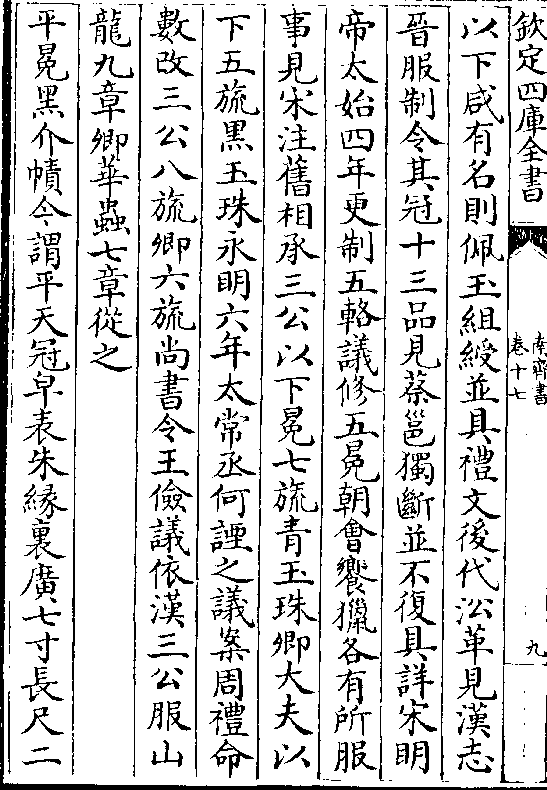 欽定四庫全書
南齊書
卷十七
九
以下咸有名則佩玉組綬並具禮文後代沿革見漢志
晉服制令其冠十三品見蔡邕獨斷並不復具詳宋明
帝太始四年更制五輅議修五冕朝會饗獵各有所服
事見宋注舊相承三公以下冕七旒青玉珠卿大夫以
下五旒黑玉珠永明六年太常丞何諲之議案周禮命
數改三公八旒卿六旒尚書令王儉議依漢三公服山
龍九章卿華蟲七章從之
平冕黑介幘今謂平天冠皁表朱緣裏廣七寸長尺二